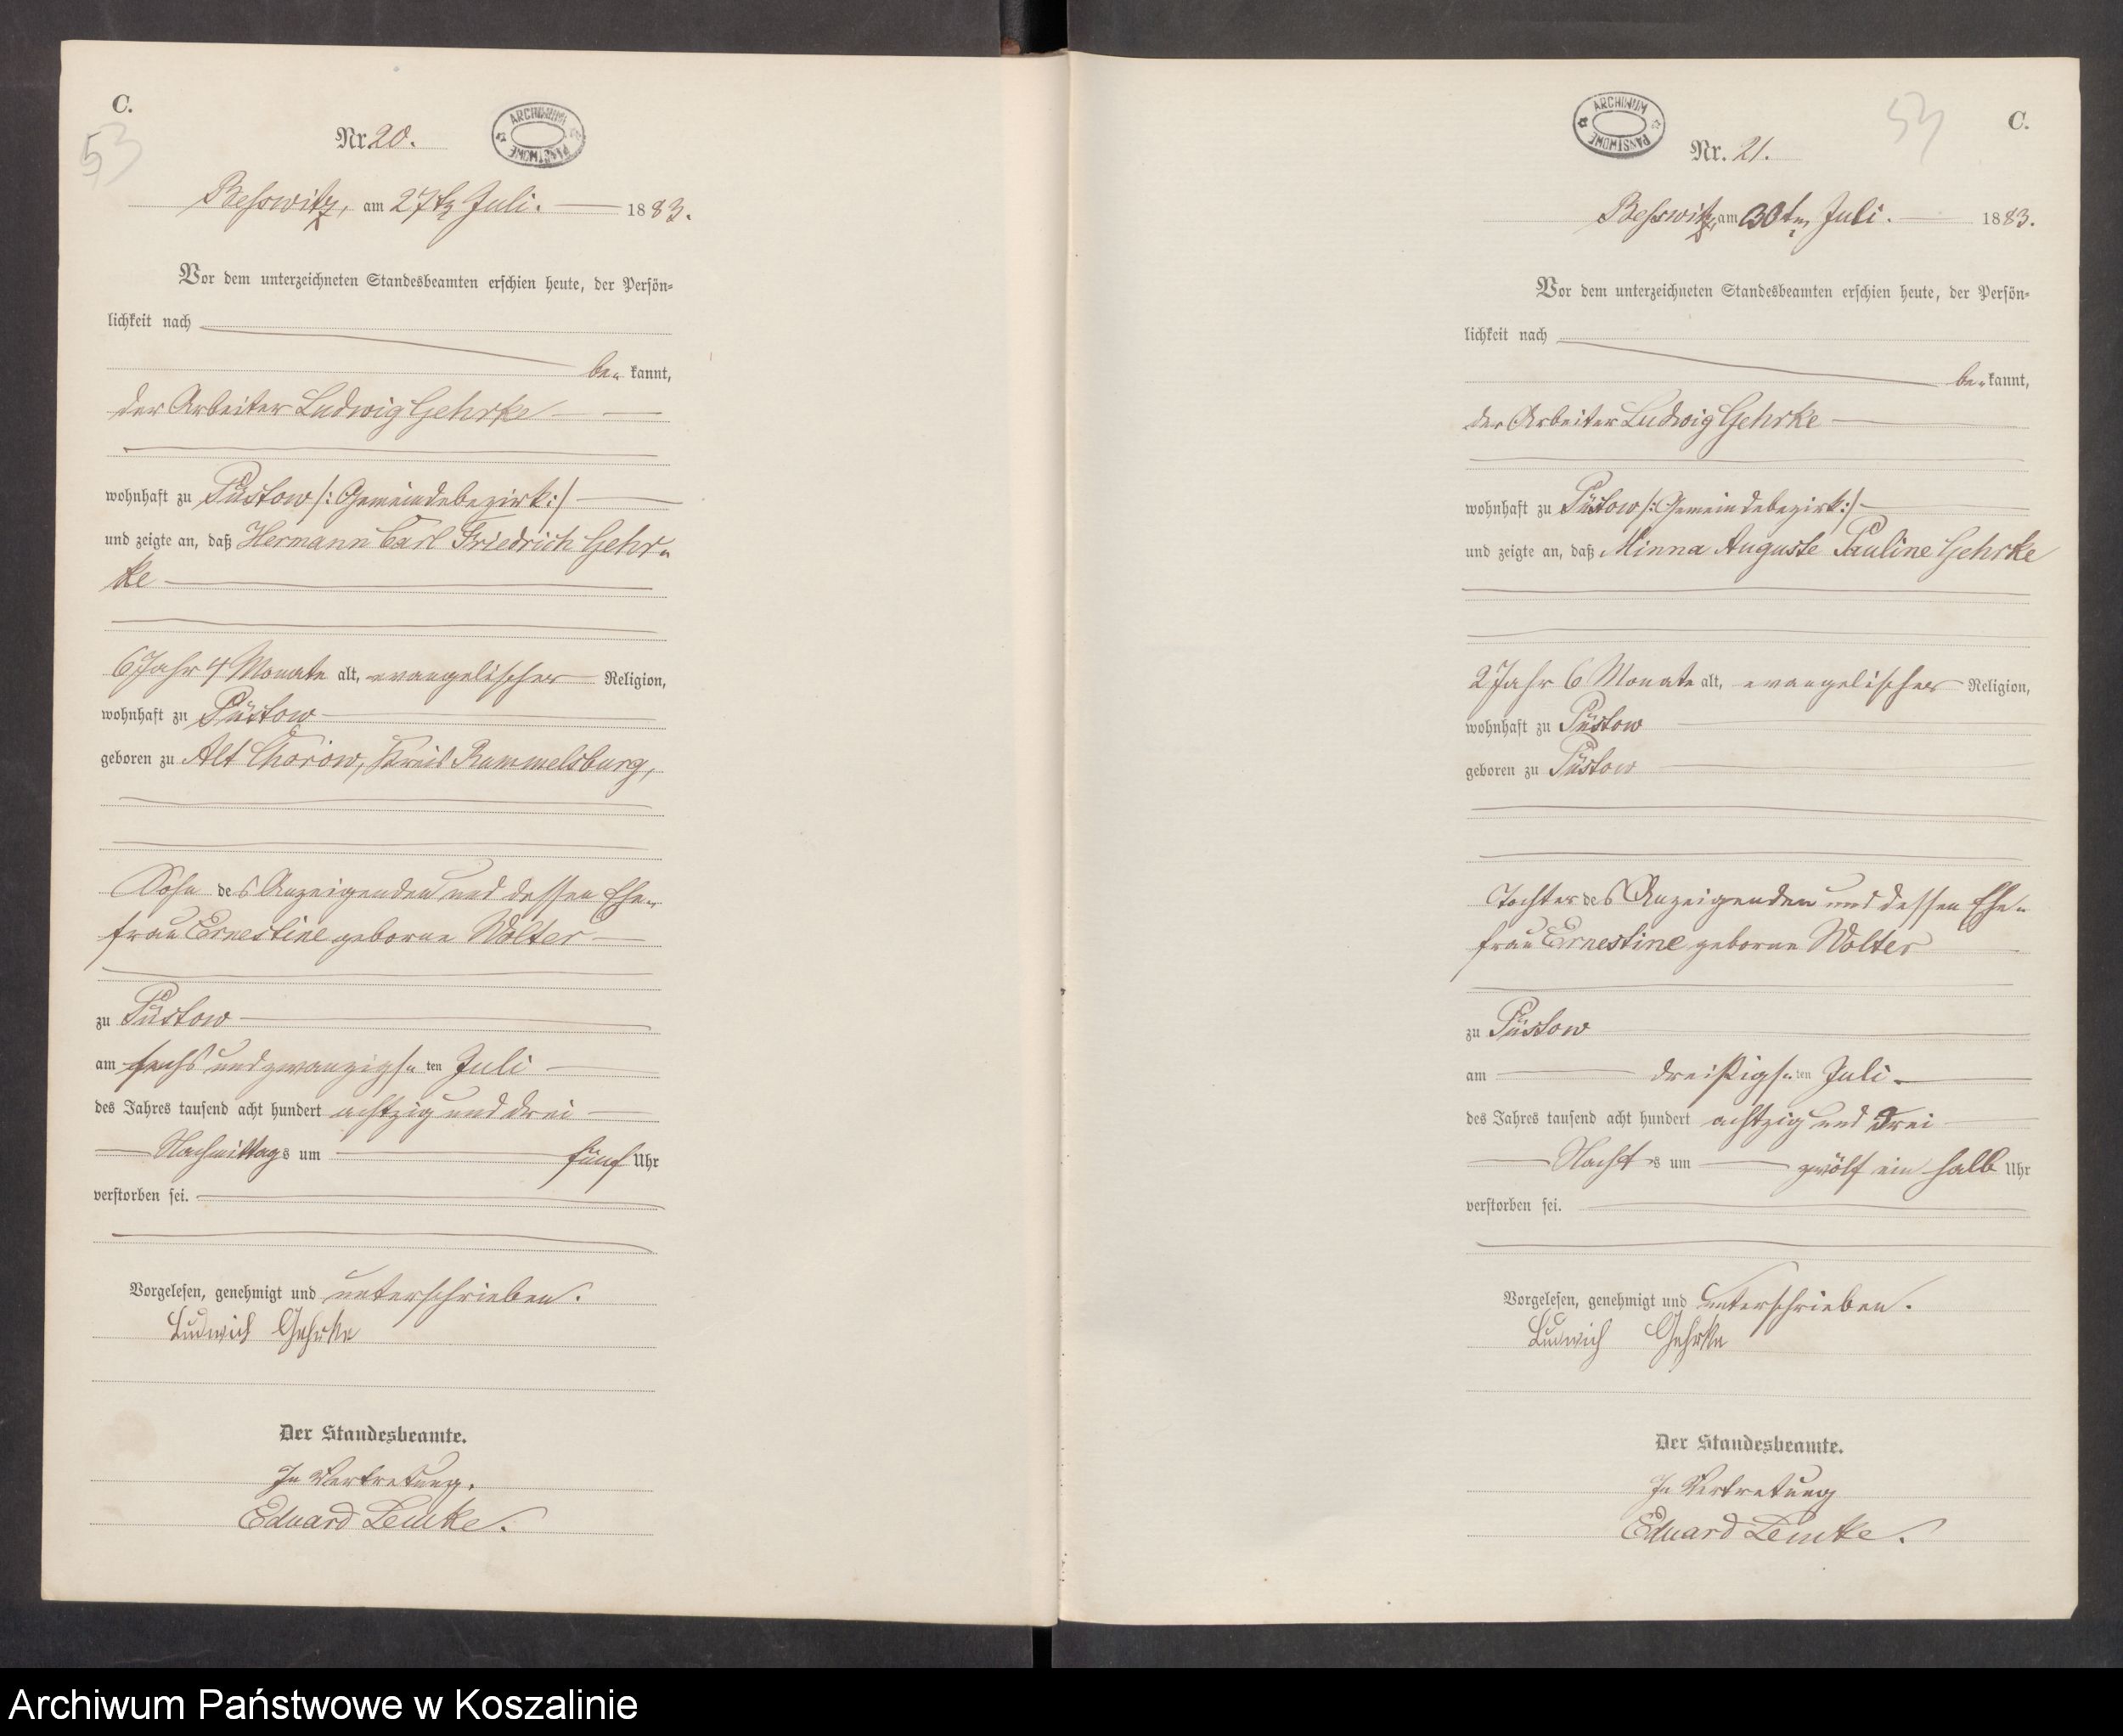 C.
53
Nr 20.
ARCHIWUM PAŃSTWOWE
Besswitz, am 27ten Juli. 1883.
Vor dem unterzeichneten Standesbeamten erschien heute, der Persön-
lichkeit nach
be- kannt,
der Arbeiter Ludwig Gehrke
wohnhaft zu Püstow /: Gemeindebezirk :/
und zeigte an, daß Hermann Carl Friedrich Gehr-
ke
6 Jahr 4 Monate alt, evangelischer Religion,
wohnhaft zu Püstow
geboren zu Alt Chorow, Kreis Rummelsburg,
Sohn des Anzeigenden und dessen Ehe-
frau Ernestine geborne Wolter
zu Püstow
am sechs und zwanzigs- ten Juli
des Jahres tausend acht hundert achtzig und drei
Nachmittags um fünf Uhr
verstorben sei.
Vorgelesen, genehmigt und unterschrieben.
Ludwich Gehrke
Der Standesbeamte.
In Vertretung.
Eduard Lemke.
ARCHIWUM PAŃSTWOWE
54
C.
Nr. 21.
Besswitz, am 30ten Juli. 1883.
Vor dem unterzeichneten Standesbeamten erschien heute, der Persön-
lichkeit nach
be- kannt,
der Arbeiter Ludwig Gehrke
wohnhaft zu Püstow /: Gemeindebezirk :/
und zeigte an, daß Minna Auguste Pauline Gehrke
2 Jahr 6 Monate alt, evangelischer Religion,
wohnhaft zu Püstow
geboren zu Püstow
Tochter des Anzeigenden und dessen Ehe-
frau Ernestine geborne Wolter
zu Püstow
am dreißigs- ten Juli
des Jahres tausend acht hundert achtzig und drei
Nachts um zwölf ein halb Uhr
verstorben sei.
Vorgelesen, genehmigt und unterschrieben.
Ludwich Gehrke
Der Standesbeamte.
In Vertretung
Eduard Lemke.
Archiwum Państwowe w Koszalinie